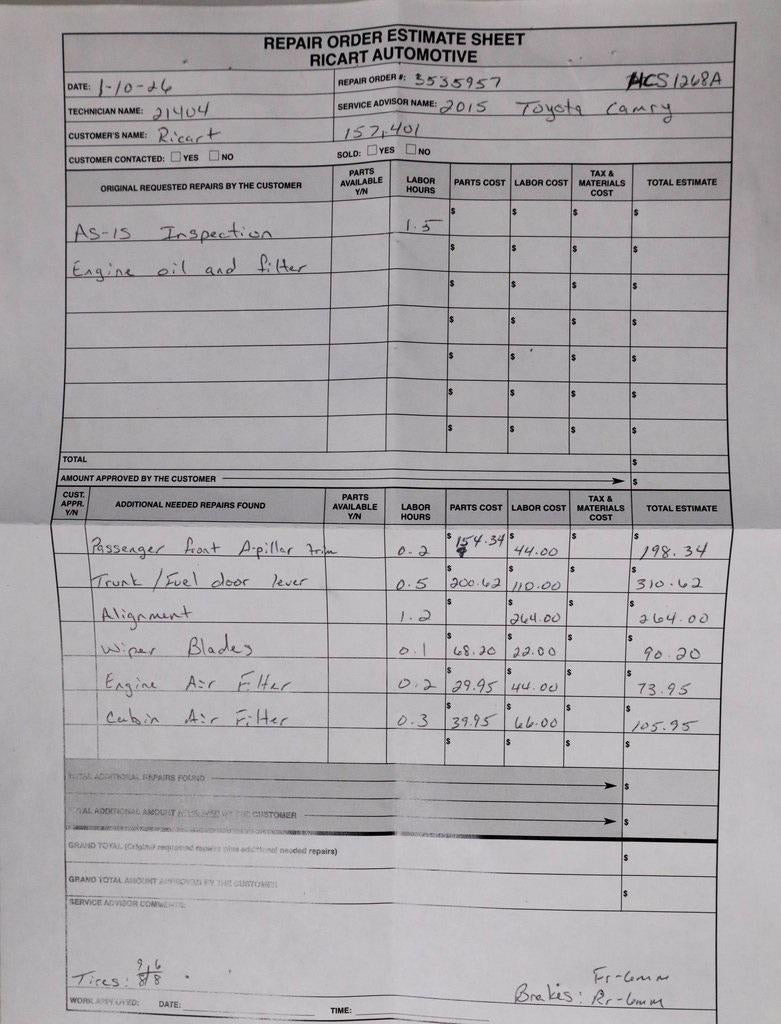 REPAIR ORDER ESTIMATE SHEET
RICART AUTOMOTIVE
DATE: 1-10-26 REPAIR ORDER #: 3535957 HCS1268A
TECHNICIAN NAME: 21404 SERVICE ADVISOR NAME: 2015 Toyota Camry
CUSTOMER'S NAME: Ricart 157,401
CUSTOMER CONTACTED: ☐ YES ☐ NO SOLD: ☐ YES ☐ NO
ORIGINAL REQUESTED REPAIRS BY THE CUSTOMER PARTS AVAILABLE Y/N LABOR HOURS PARTS COST LABOR COST TAX & MATERIALS COST TOTAL ESTIMATE
AS-IS Inspection 1.5 $ $ $ $
Engine oil and filter $ $ $ $
$ $ $ $
$ $ $ $
$ $ $ $
$ $ $ $
$ $ $ $
TOTAL $
AMOUNT APPROVED BY THE CUSTOMER $
CUST. APPR. Y/N ADDITIONAL NEEDED REPAIRS FOUND PARTS AVAILABLE Y/N LABOR HOURS PARTS COST LABOR COST TAX & MATERIALS COST TOTAL ESTIMATE
Passenger front A-pillar trim 0.2 $ 154.34 $ 44.00 $ $ 198.34
Trunk / Fuel door lever 0.5 $ 200.62 $ 110.00 $ $ 310.62
Alignment 1.2 $ $ 264.00 $ $ 264.00
Wiper Blades 0.1 $ 68.20 $ 22.00 $ $ 90.20
Engine Air Filter 0.2 $ 29.95 $ 44.00 $ $ 73.95
Cabin Air Filter 0.3 $ 39.95 $ 66.00 $ $ 105.95
$ $ $ $
TOTAL ADDITIONAL REPAIRS FOUND $
TOTAL ADDITIONAL AMOUNT APPROVED BY THE CUSTOMER $
GRAND TOTAL (Original requested repairs plus additional needed repairs) $
GRAND TOTAL AMOUNT APPROVED BY THE CUSTOMER $
SERVICE ADVISOR COMMENTS:
Tires: 9/8 6/8
Brakes: Fr-6mm
Rr-6mm
WORK APPROVED: DATE: TIME: